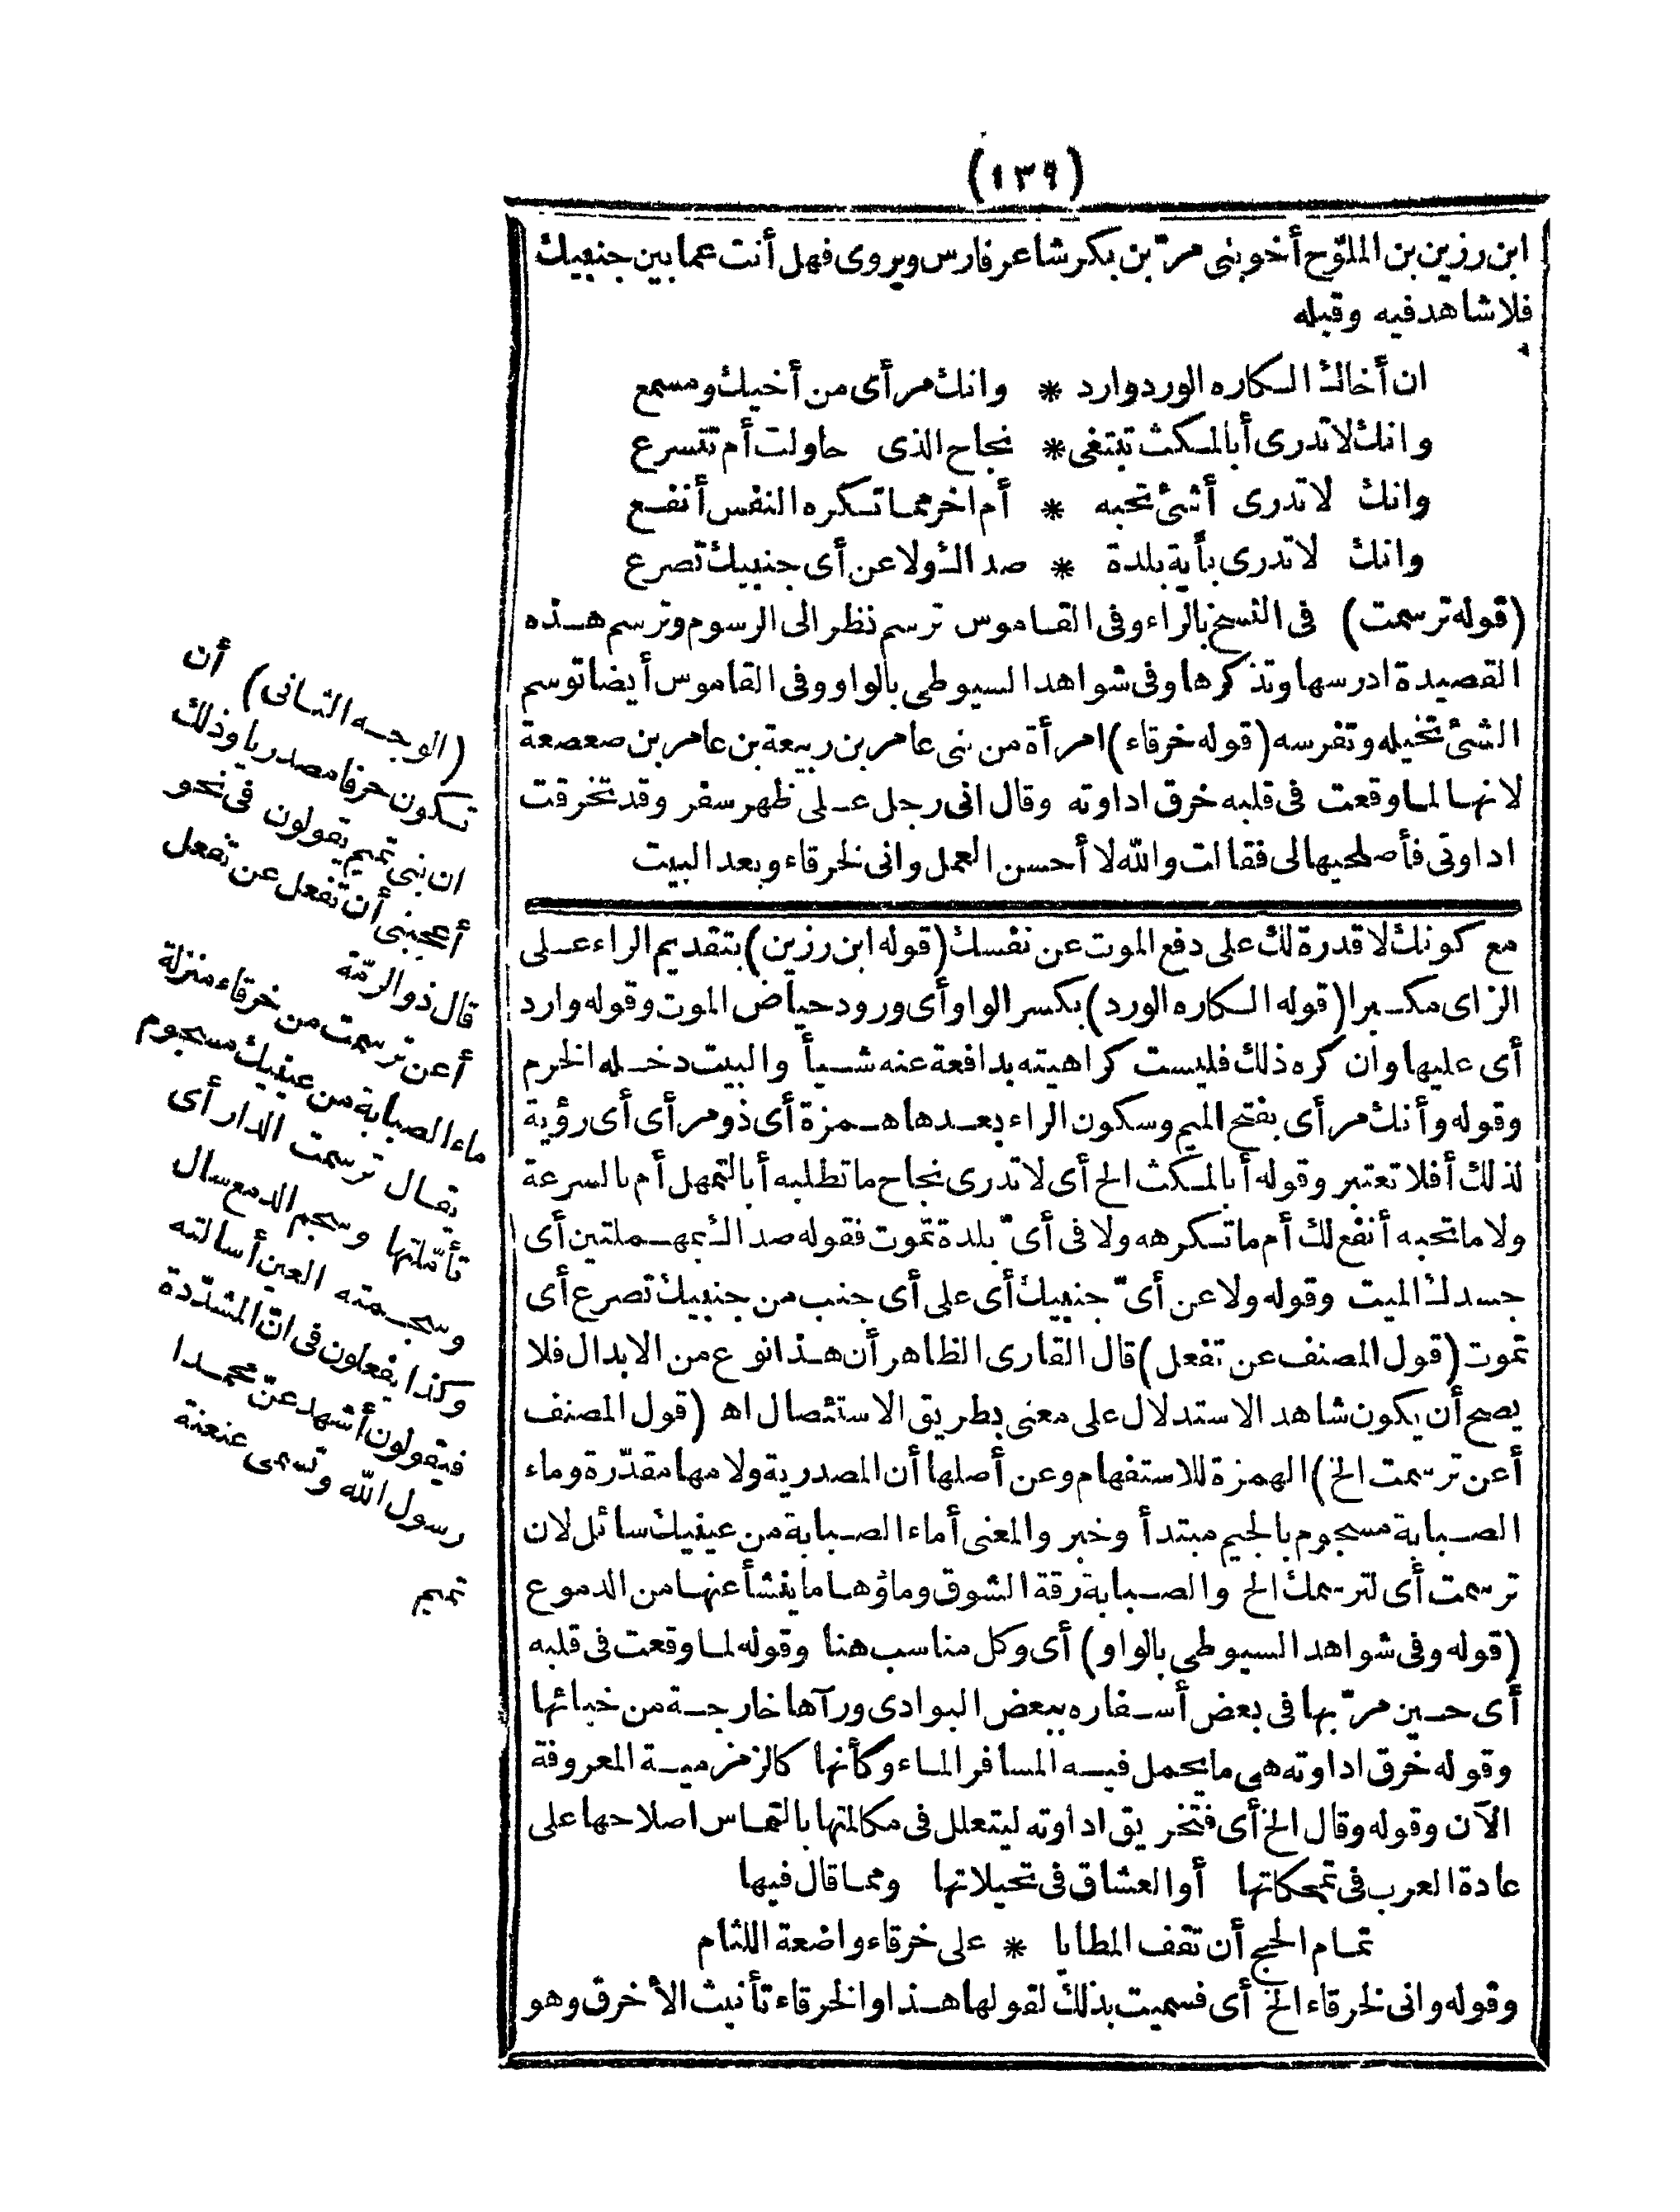 (١٣٩)
ابن رزين بن الملوّح أخو بنى مرّ بن بكر شاعر فارس ويروى فهل أنت عما بين جنبيك
فلا شاهد فيه وقبله
ان أخاك الكاره الورد وارد * وانك مرأى من أخيك ومسمع
وانك لا تدرى أبالمكث تبتغى * نجاح الذى حاولت أم تتسرع
وانك لا تدرى أشئ تحبه * أم اخر مما تكره النفس أنفع
وانك لا تدرى بأية بلدة * صداك ولا عن أى جنبيك تصرع
(قوله ترسمت) فى النسخ بالراء وفى القاموس ترسم نظر الى الرسوم وترسم هذه
القصيدة ادرسها وتذكرها وفى شواهد السيوطى بالواو وفى القاموس أيضا توسم
الشئ تخيله وتفرسه (قوله خرقاء) امرأة من نى عامر بن ربيعة بن عامر بن صعصعة
لانها لما وقعت فى قلبه خرق اداوته وقال انى رجل على ظهر سفر وقد تخرقت
اداوتى فأصلحيها لى فقالت والله لا أحسن العمل وانى لخرقاء وبعد البيت
مع كونك لا قدرة لك على دفع الموت عن نفسك (قوله ابن رزين) بتقديم الراء على
الزاى مكبرا (قوله الكاره الورد) بكسر الواو أى ورود حياض الموت وقوله وارد
أى عليها وان كره ذلك فليست كراهيته بدافعة عنه شيأ والبيت دخله الخرم
وقوله وأنك مرأى بفتح الميم وسكون الراء بعدها همزة أى ذو مرأى أى رؤية
لذلك أفلا تعتبر وقوله أبالمكث الخ أى لا تدرى نجاح ما تطلبه أبالتمهل أم بالسرعة
ولا ما تحبه أنفع لك أم ما تكرهه ولا فى أىّ بلدة تموت فقوله صداك بمهملتين أى
جسدك الميت وقوله ولا عن أىّ جنبيك أى على أى جنب من جنبيك تصرع أى
تموت (قول المصنف عن تفعل) قال القارى الظاهر أن هذا نوع من الابدال فلا
يصح أن يكون شاهد الاستدلال على معنى بطريق الاستئصال اه (قول المصنف
أعن ترسمت الخ) الهمزة للاستفهام وعن أصلها أن المصدرية ولامها مقدّرة وماء
الصبابة مسجوم بالجيم مبتدأ وخبر والمعنى أماء الصبابة من عينيك سائل لان
ترسمت أى لترسمك الخ والصبابة رقة الشوق وماؤها ما ينشأ عنها من الدموع
(قوله وفى شواهد السيوطى بالواو) أى وكل مناسب هنا وقوله لما وقعت فى قلبه
أى حين مرّ بها فى بعض أسفاره ببعض البوادى ورآها خارجة من خبائها
وقوله خرق اداوته هى ما يحمل فيه المسافر الماء وكأنها كالزمزمية المعروفة
الآن وقوله وقال الخ أى فتخريق اداوته ليتعلل فى مكالمتها بالتماس اصلاحها على
عادة العرب فى تمحكاتها أو العشاق فى تحيلاتها ومما قال فيها
تمام الحج أن تقف المطايا * على خرقاء واضعة اللثام
وقوله وانى لخرقاء الخ أى فسميت بذلك لقولها هذا والخرقاء تأنيث الأخرق وهو
(الوجه الثانى) أن
تكون حرفا مصدريا وذلك
ان بنى تميم يقولون فى نحو
أعجبنى أن تفعل عن تفعل
قال ذو الرمّة
أعن ترسمت من خرقاء منزلة
ماء الصبابة من عينيك مسجوم
يقال ترسمت الدار أى
تأمّلتها وسجم الدمع سال
وسجمته العين أسالته
وكذا يفعلون فى انّ المشدّدة
فيقولون أشهد عنّ محمدا
رسول الله وتسمى عنعنة
تميم